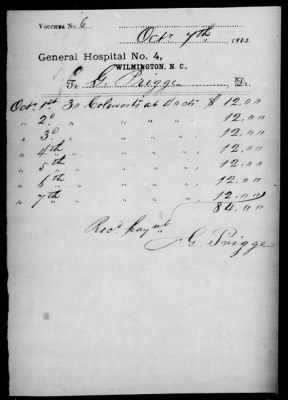 Voucher No 6
Octr 7th 1863
General Hospital No. 4,
WILMINGTON, N. C.,
To G. Prigge, Dr.
Octr 1st 30 Coleworts at 40 cts $ 12.00
" 2d " " " " " 12.00
" 3d " " " " " 12.00
" 4th " " " " " 12.00
" 5th " " " " " 12.00
" 6th " " " " " 12.00
" 7th " " " " " 12.00
84.00
Recd paynt
G. Prigge